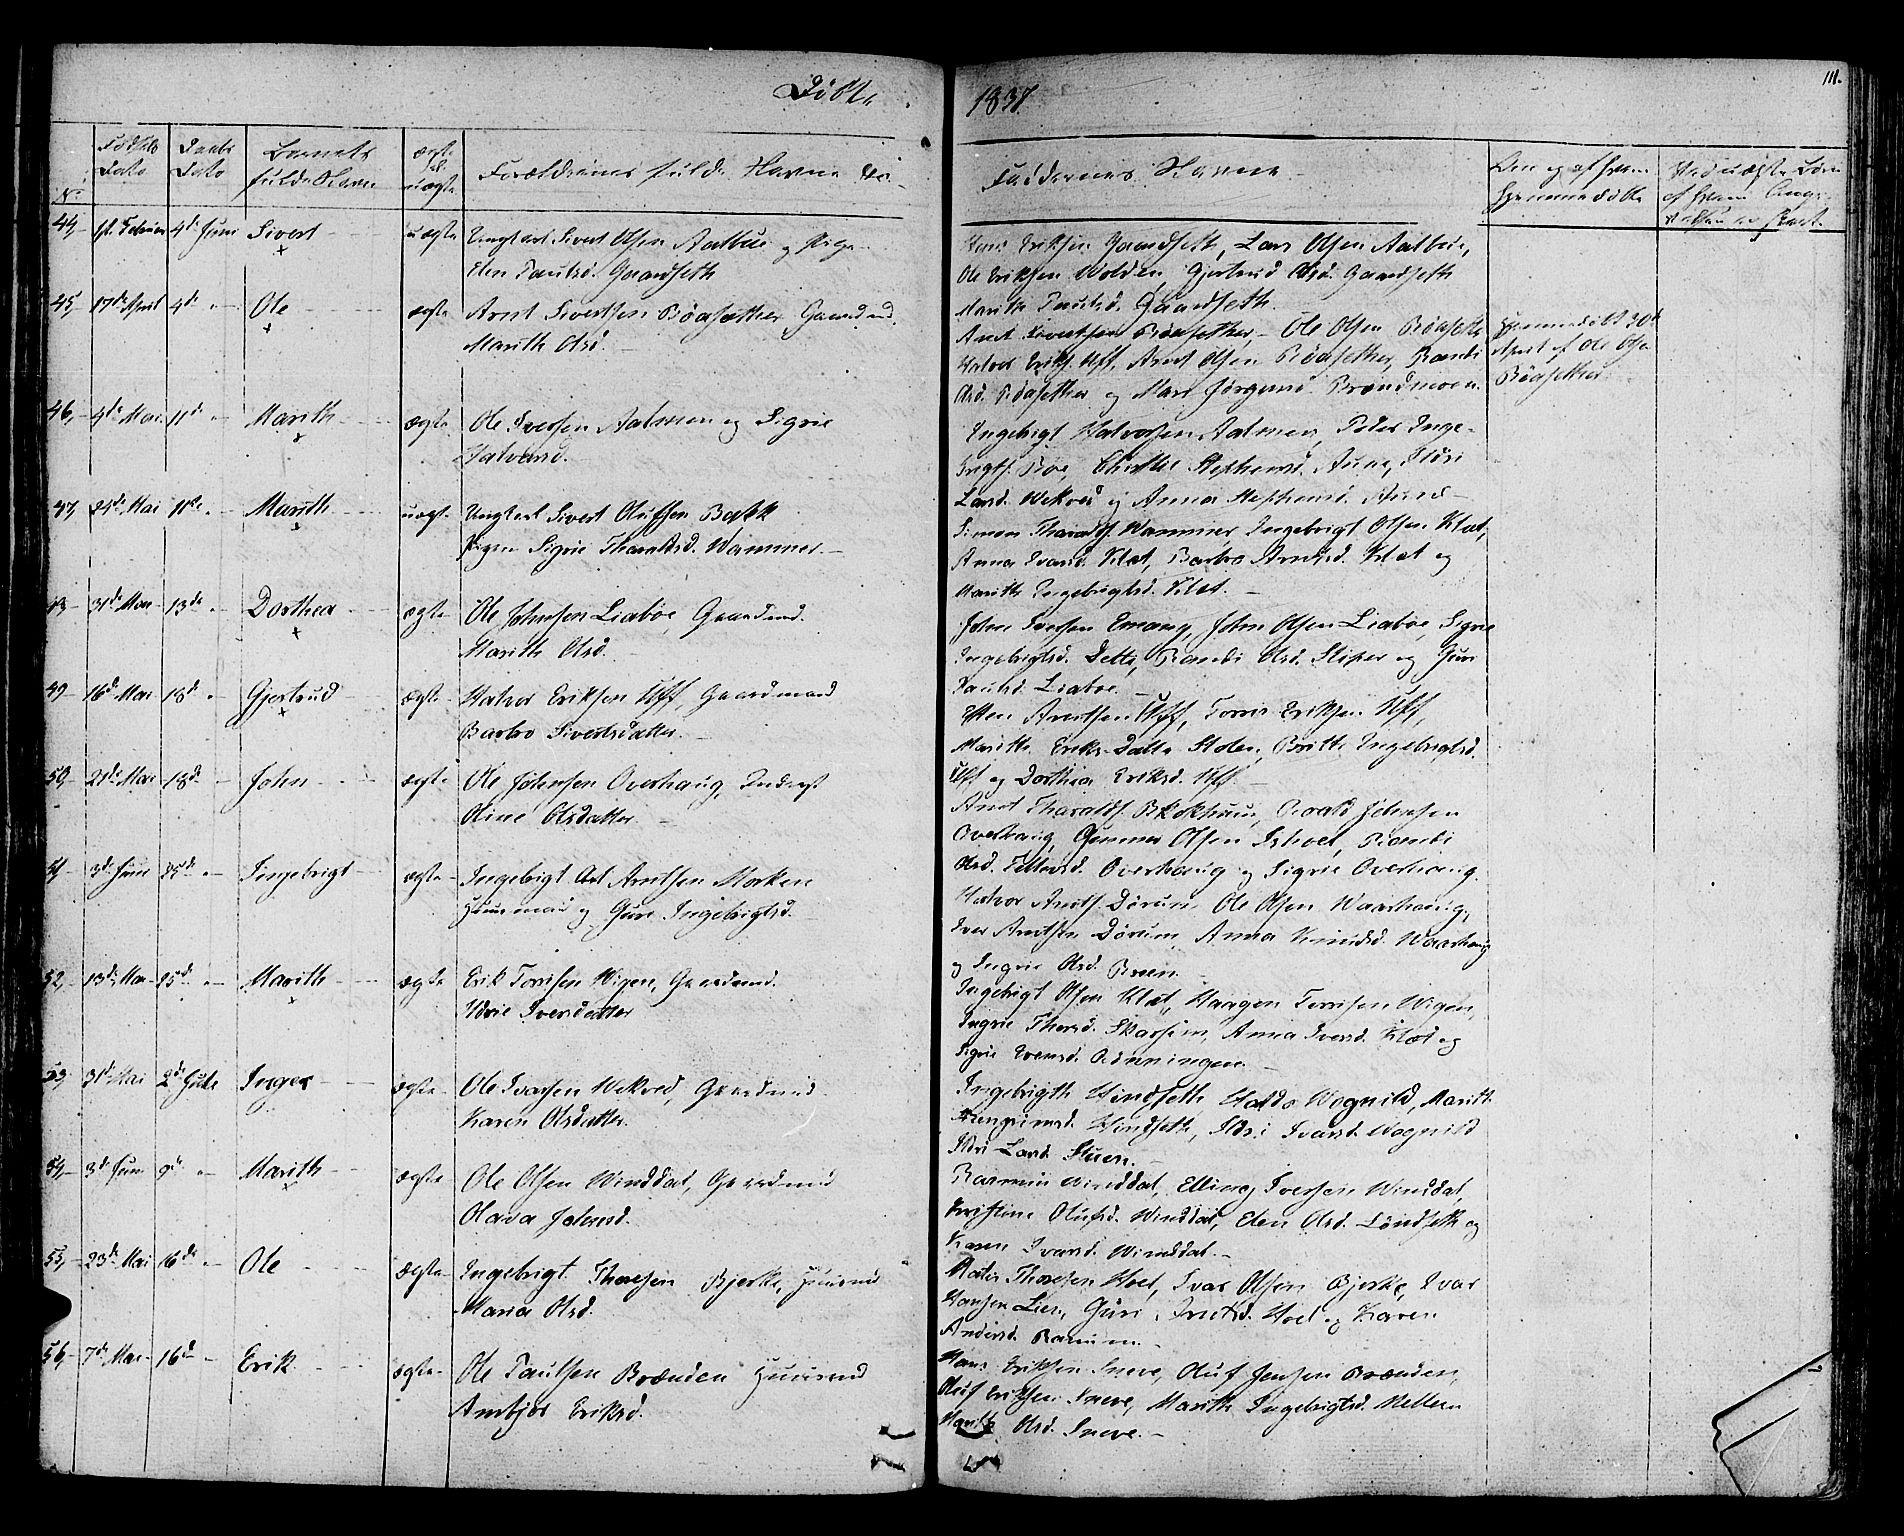 Døbte
1837.
111.
No.
Fødsels Dato
Daabs Dato
Barnets fulde Navn
ægte el. uægte
Forældrenes fulde Navne
Faddernes Navne
Om og af hvem Hjemmedøbt
44, 4de Juni Sivert uægte Ungkarl Sivert Olsen Aalbue og Pige
Elen Paulsd. Gaardseth
Hans Eriksen Gaardseth, Lars Olsen Aalbue,
Ole Eriksen Wolden, Gjertrud Olsd. Gaardseth
Marith Paulsd. Gaardseth.
45, 17de April 4de Ole ægte Arnt Sivertsen Böasæther Gaardmd.
Marith Olsd.
Arnt Sivertsen Böasæther, Ole Olsen Böasæther
Halvor Eriks. Uff, Arnt Olsen Böasæther, Randi
Olsd. Böasæther og Mari Jørgensd. Brændmoen.
Hjemmedöbt 30te
April af Ole Olsen
Böasæther
46, 4de Mai 11de Marith ægte Ole Iversen Aalmen og Sigrie
Halvorsd.
Ingebrigt Halvorsen Aalmen, Peder Inge-
brigts. Böe, Stephensd. Aune, Ildri
Larsd. Wekved og Anna Stephensd. Aune
47, 24de Mai 11te Marith uægte Ungkarl Sivert Olufsen Bakk
Pigen Sigrie Tharaldsd. Wammer.
Simen Tharalds. Wammer, Ingebrigt Olsen Klæt,
Anna Ivarsd. Klæt, Barbro Arntsd. Klæt og
Marith Ingebrigtsd. Klæt.
48 31de Mai 13de Dorthea ægte Ole Johnsen Liabøe, Gaardmd.
Marith Olsd.
John Iversen Emaug, John Olsen Liabøe, Sigrie
Ingebrigtsd. Detli, Randi Olsd. Sliper og Guri
Paulsd. Liabøe.
49 16de Mai 18de Gjertrud ægte Halvor Eriksen Uff, Gaardmand
Barbro Sivertsdatter.
Esten Arntsen Uff, Torris Eriksen Uff,
Marith Eriksdatter Stolen, Britt Ingebrigtsd.
Uff og Dorthea Eriksd. Uff
50, 21de Mai 18de John ægte Ole Johnsen Overhaug, Inderst
Oline Olsdatter
Arnt Tharalds. Johnsen
Overhaug, Gunner Olsen Ishoel, Randi
Olsd. Overhaug og Sigrie Overhaug.
51, 3de Juni 25de Ingebrigt ægte Ingebrigt Arntsen Morken
Huusmand og Guri Ingebrigtsd.
Halvor Arnts. Dörum, Ole Olsen Waarhaug,
Iver Arntsen Dörum, Anna Knudsd. Waarhaug
og Ingrie Olsd. Bruen.
52, 13de Mai 25de Marith ægte Erik Torrisen Wigen, Gaardmd.
Ildrie Iversdatter
Ingebrigt Olsen Klæt, Haagen Torrisen Wigen,
Ingrie Thorsd. Skarsem, Anna Iversd. Klæt og
Sigrie Evensd. Rönningen
53, 31de Mai 2de Jule Inger ægte Ole Ivarsen Wekved, Gaardmd
Karen Olsdatter.
Ingebrigth Hindseth, Wognild, Marith
Hindseth, Ildri Ivarsd. Wognild
Ildri Larsd. Stuen.
54, 3de Juni 9de Marith ægte Ole Olsen Winddal, Gaardmd
Olava Johnsd.
Winddal, Elling Iversen Winddal,
Kirstine Olufsd. Winddal, Elen Olsd. Löndseth og
Karen Ivarsd. Winddal.
55, 23de Mai 16de Ole ægte Ingebrigt Thoresen Bjerke, Huusmd
Maria Olsd.
Thoresen Hoel, Ivar Olsen Bjerke, Ivar
Hansen Lien, Guri Hoel og Karen
Andersd.
56, 7de Mai 16de Erik ægte Ole Paulsen Brænden Huusmd
Ambjør Eriksd.
Hans Eriksen Sneve, Oluf Jensen Brænden,
Oluf Eriksen Sneve, Marith Ingebrigtsd. Mellem
Marith Olsd. Sneve.